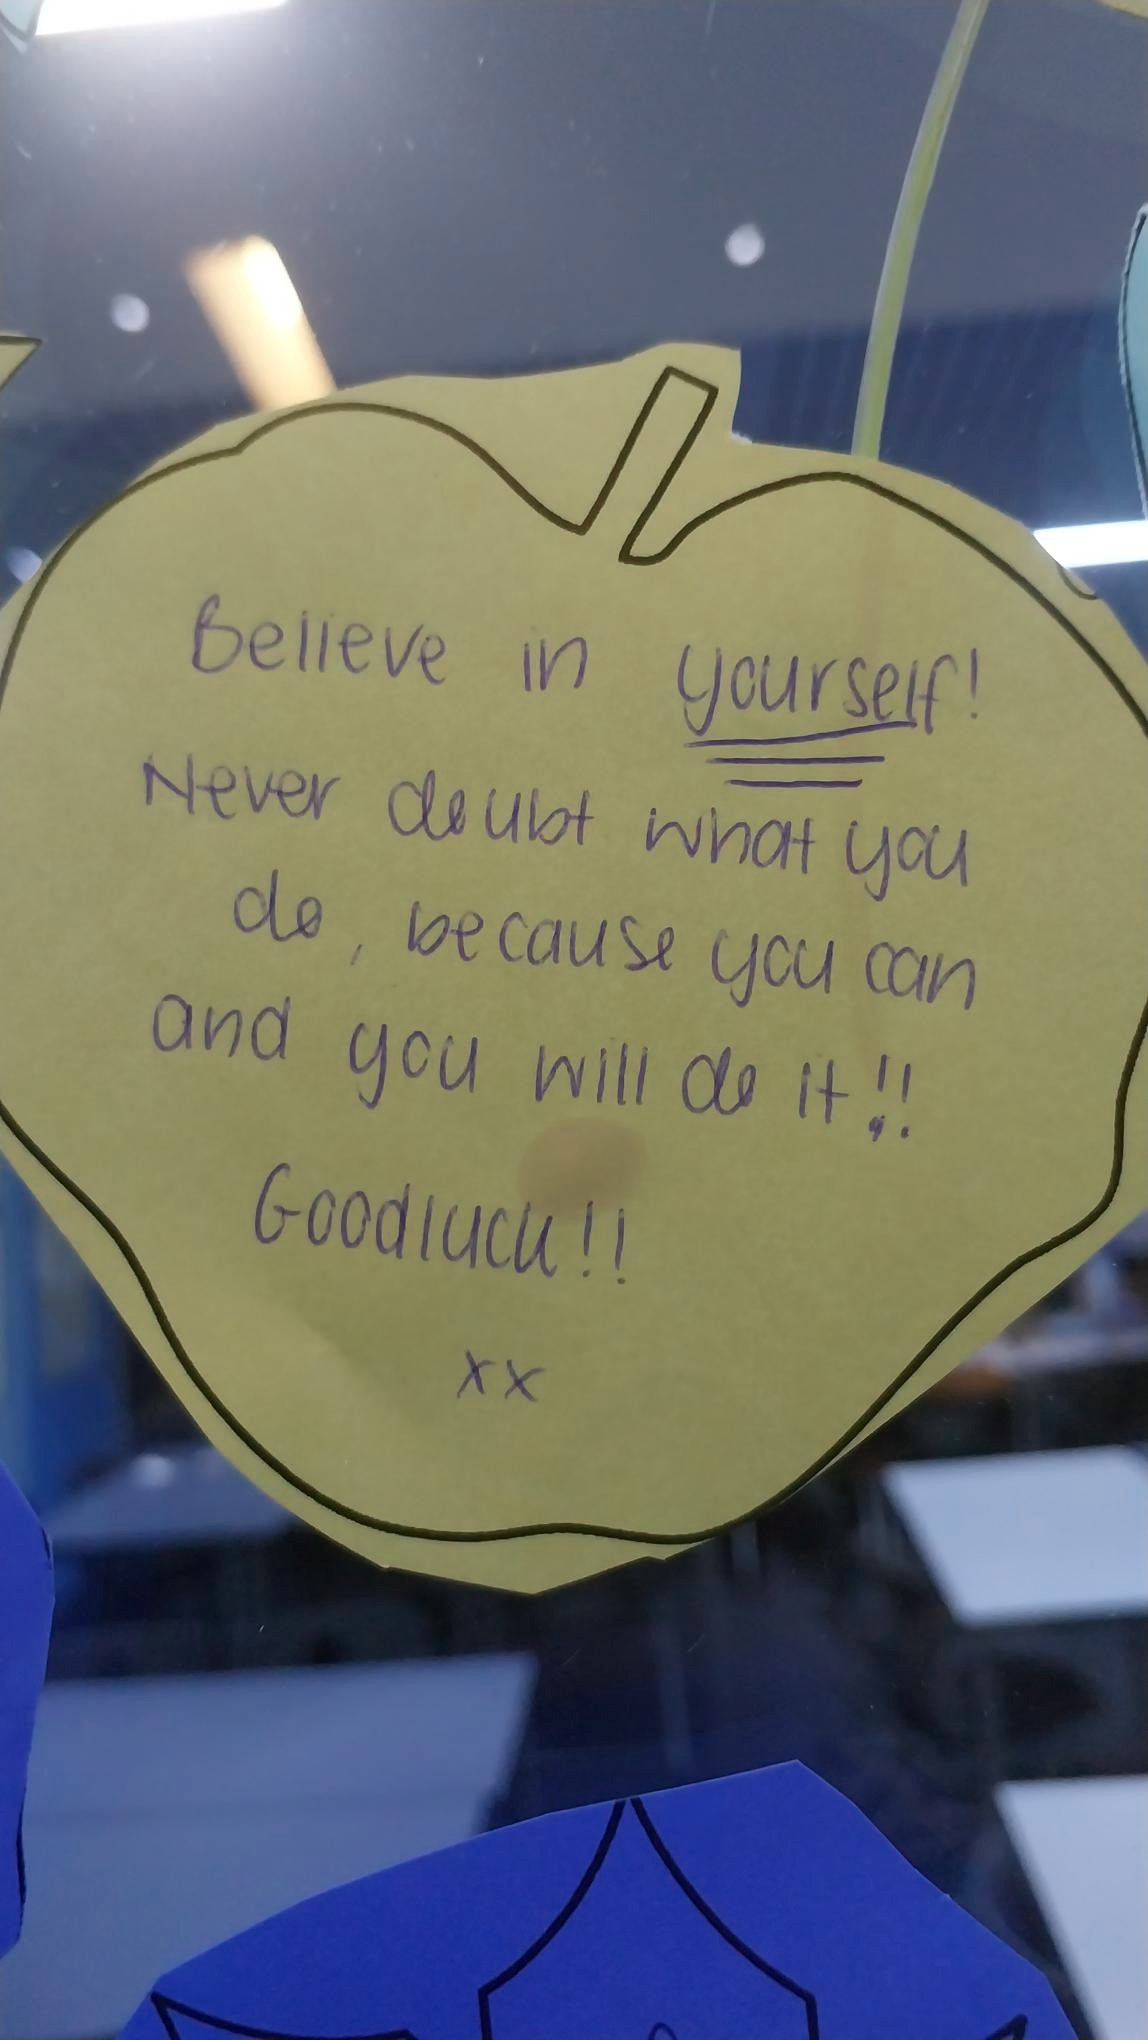 Believe in yourself!
Never doubt what you
do, because you can
and you will do it!!
Goodluck!!
xx